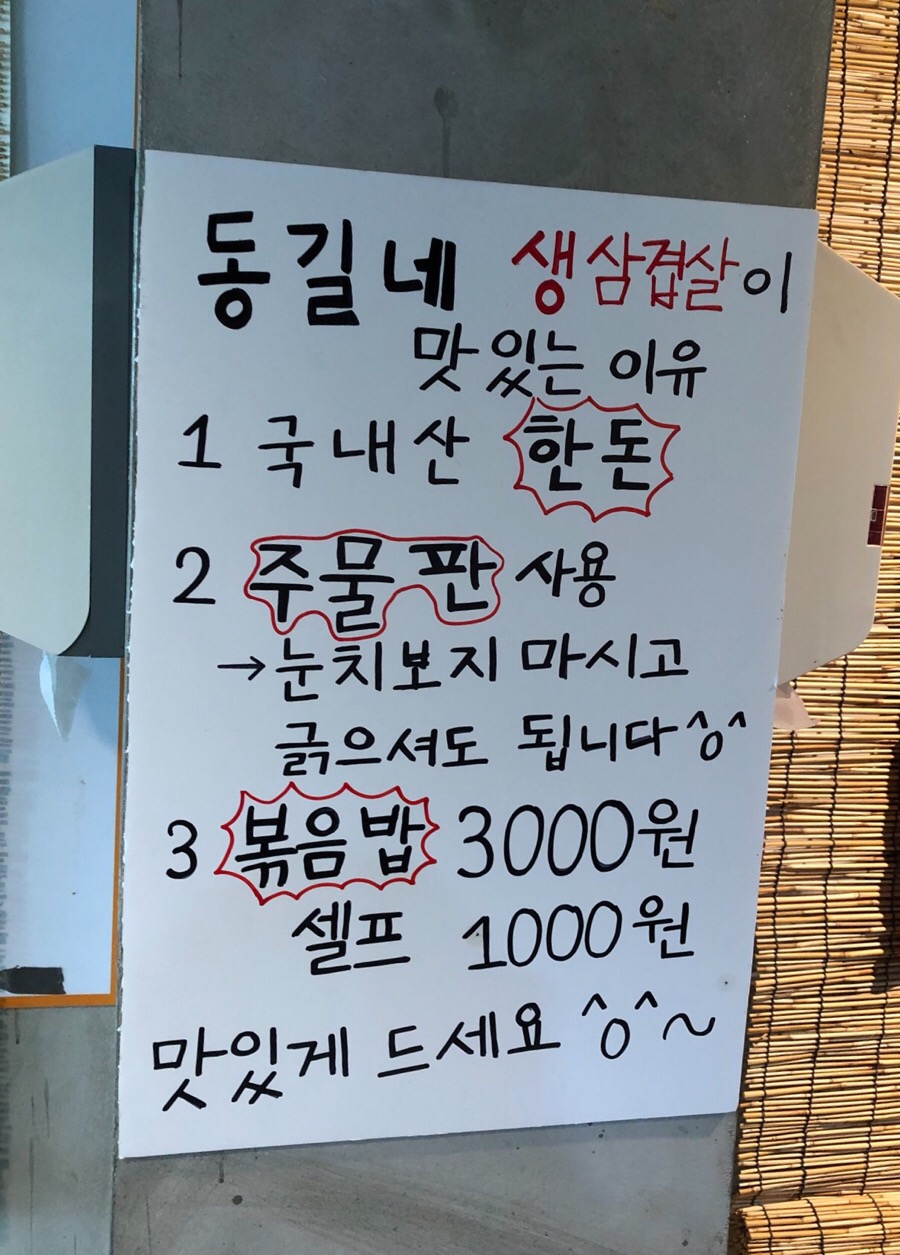 동길네 생삼겹살이
맛있는 이유
1 국내산 한돈
2 주물판 사용
→눈치보지 마시고
긁으셔도 됩니다^o^
3 볶음밥 3000원
셀프 1000원
맛있게 드세요 ^o^~